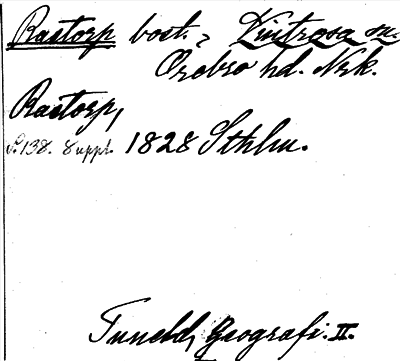 Rastorp bost. i Vintrosa sn.
Örebro hd. Nrk.
Rastorp,
S. 138. Suppl. 1828 Sthlm.
Tuneld, Geografi. II.